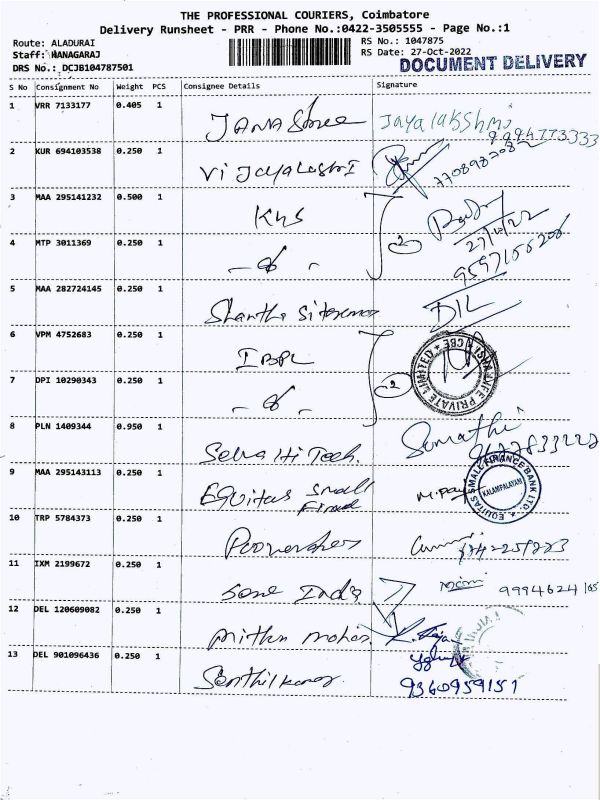 THE PROFESSIONAL COURIERS, Coimbatore
Delivery Runsheet - PRR - Phone No.:0422-3505555 - Page No.:1
Route: ALADURAI
Staff: MANAGARAJ
DRS No.: DCJB104787501
RS No.: 1047875
RS Date: 27-Oct-2022
DOCUMENT DELIVERY
S No Consignment No Weight PCS Consignee Details Signature
1 VRR 7133177 0.405 1 JANA Shree Jayalakshmi
9994773333
2 KUR 694103538 0.250 1 Vijayalashmi
7708982082
3 MAA 295141232 0.500 1 KNS
27/10/22
4 MTP 3011369 0.250 1 2
5 MAA 282724145 0.250 1 Shantha Sitaraman
6 VPM 4752683 0.250 1 IBPL
7 DPI 10290343 0.250 1 2
PRIVATE LIMITED * CBE *
8 PLN 1409344 0.950 1 Selva Hi Tech. Sumathi
9 MAA 295143113 0.250 1 Equitas Small
EQUITAS SMALL FINANCE BANK LTD.
KALAMPALAYAM
10 TRP 5784373 0.250 1
11 IXM 2199672 0.250 1 Sone India
9994624165
12 DEL 120609082 0.250 1 Mithu Mohan
13 DEL 901096436 0.250 1 Senthilkumar
9360959151